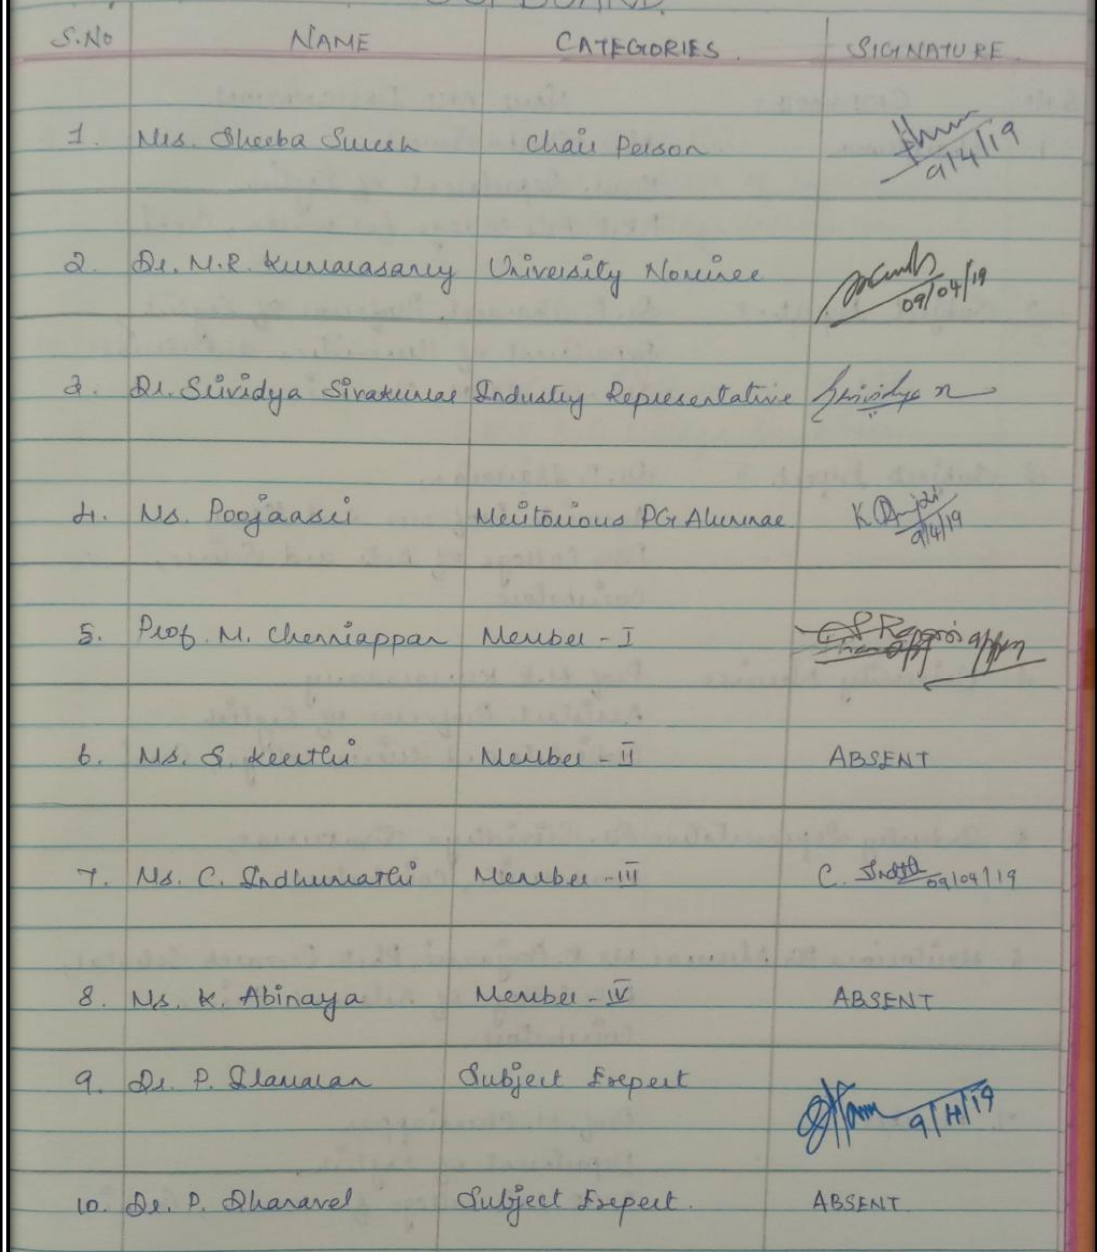 BOARD.
S.No NAME CATEGORIES. SIGNATURE.
1. Mrs. Sheeba Suresh Chair Person 9/4/19
2. Dr. M.R. Kumarasamy University Nominee 09/04/19
3. Dr. Srividya Sivakumar Industry Representative Srividya
4. Ms. Poojaasri Meritorious PG Alumnae K 9/4/19
5. Prof. M. Chenniappan Member - I
6. Ms. S. Keerthi Member - II ABSENT
7. Ms. C. Indhumathi Member - III C. 09/04/19
8. Ms. K. Abinaya Member - IV ABSENT
9. Dr. P. Ilamaran Subject Exepert 9/4/19
10. Dr. P. Dhanavel Subject Exepert. ABSENT.